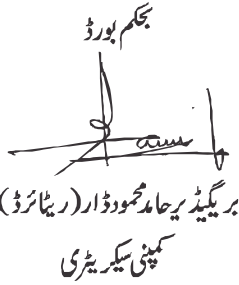 بحکم بورڈ
بریگیڈیر حامد محمود ڈار (ریٹائرڈ)
کمپنی سیکریٹری